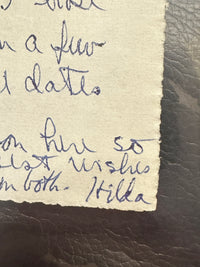 a few
dates
on here so
best wishes
on both. Hilda